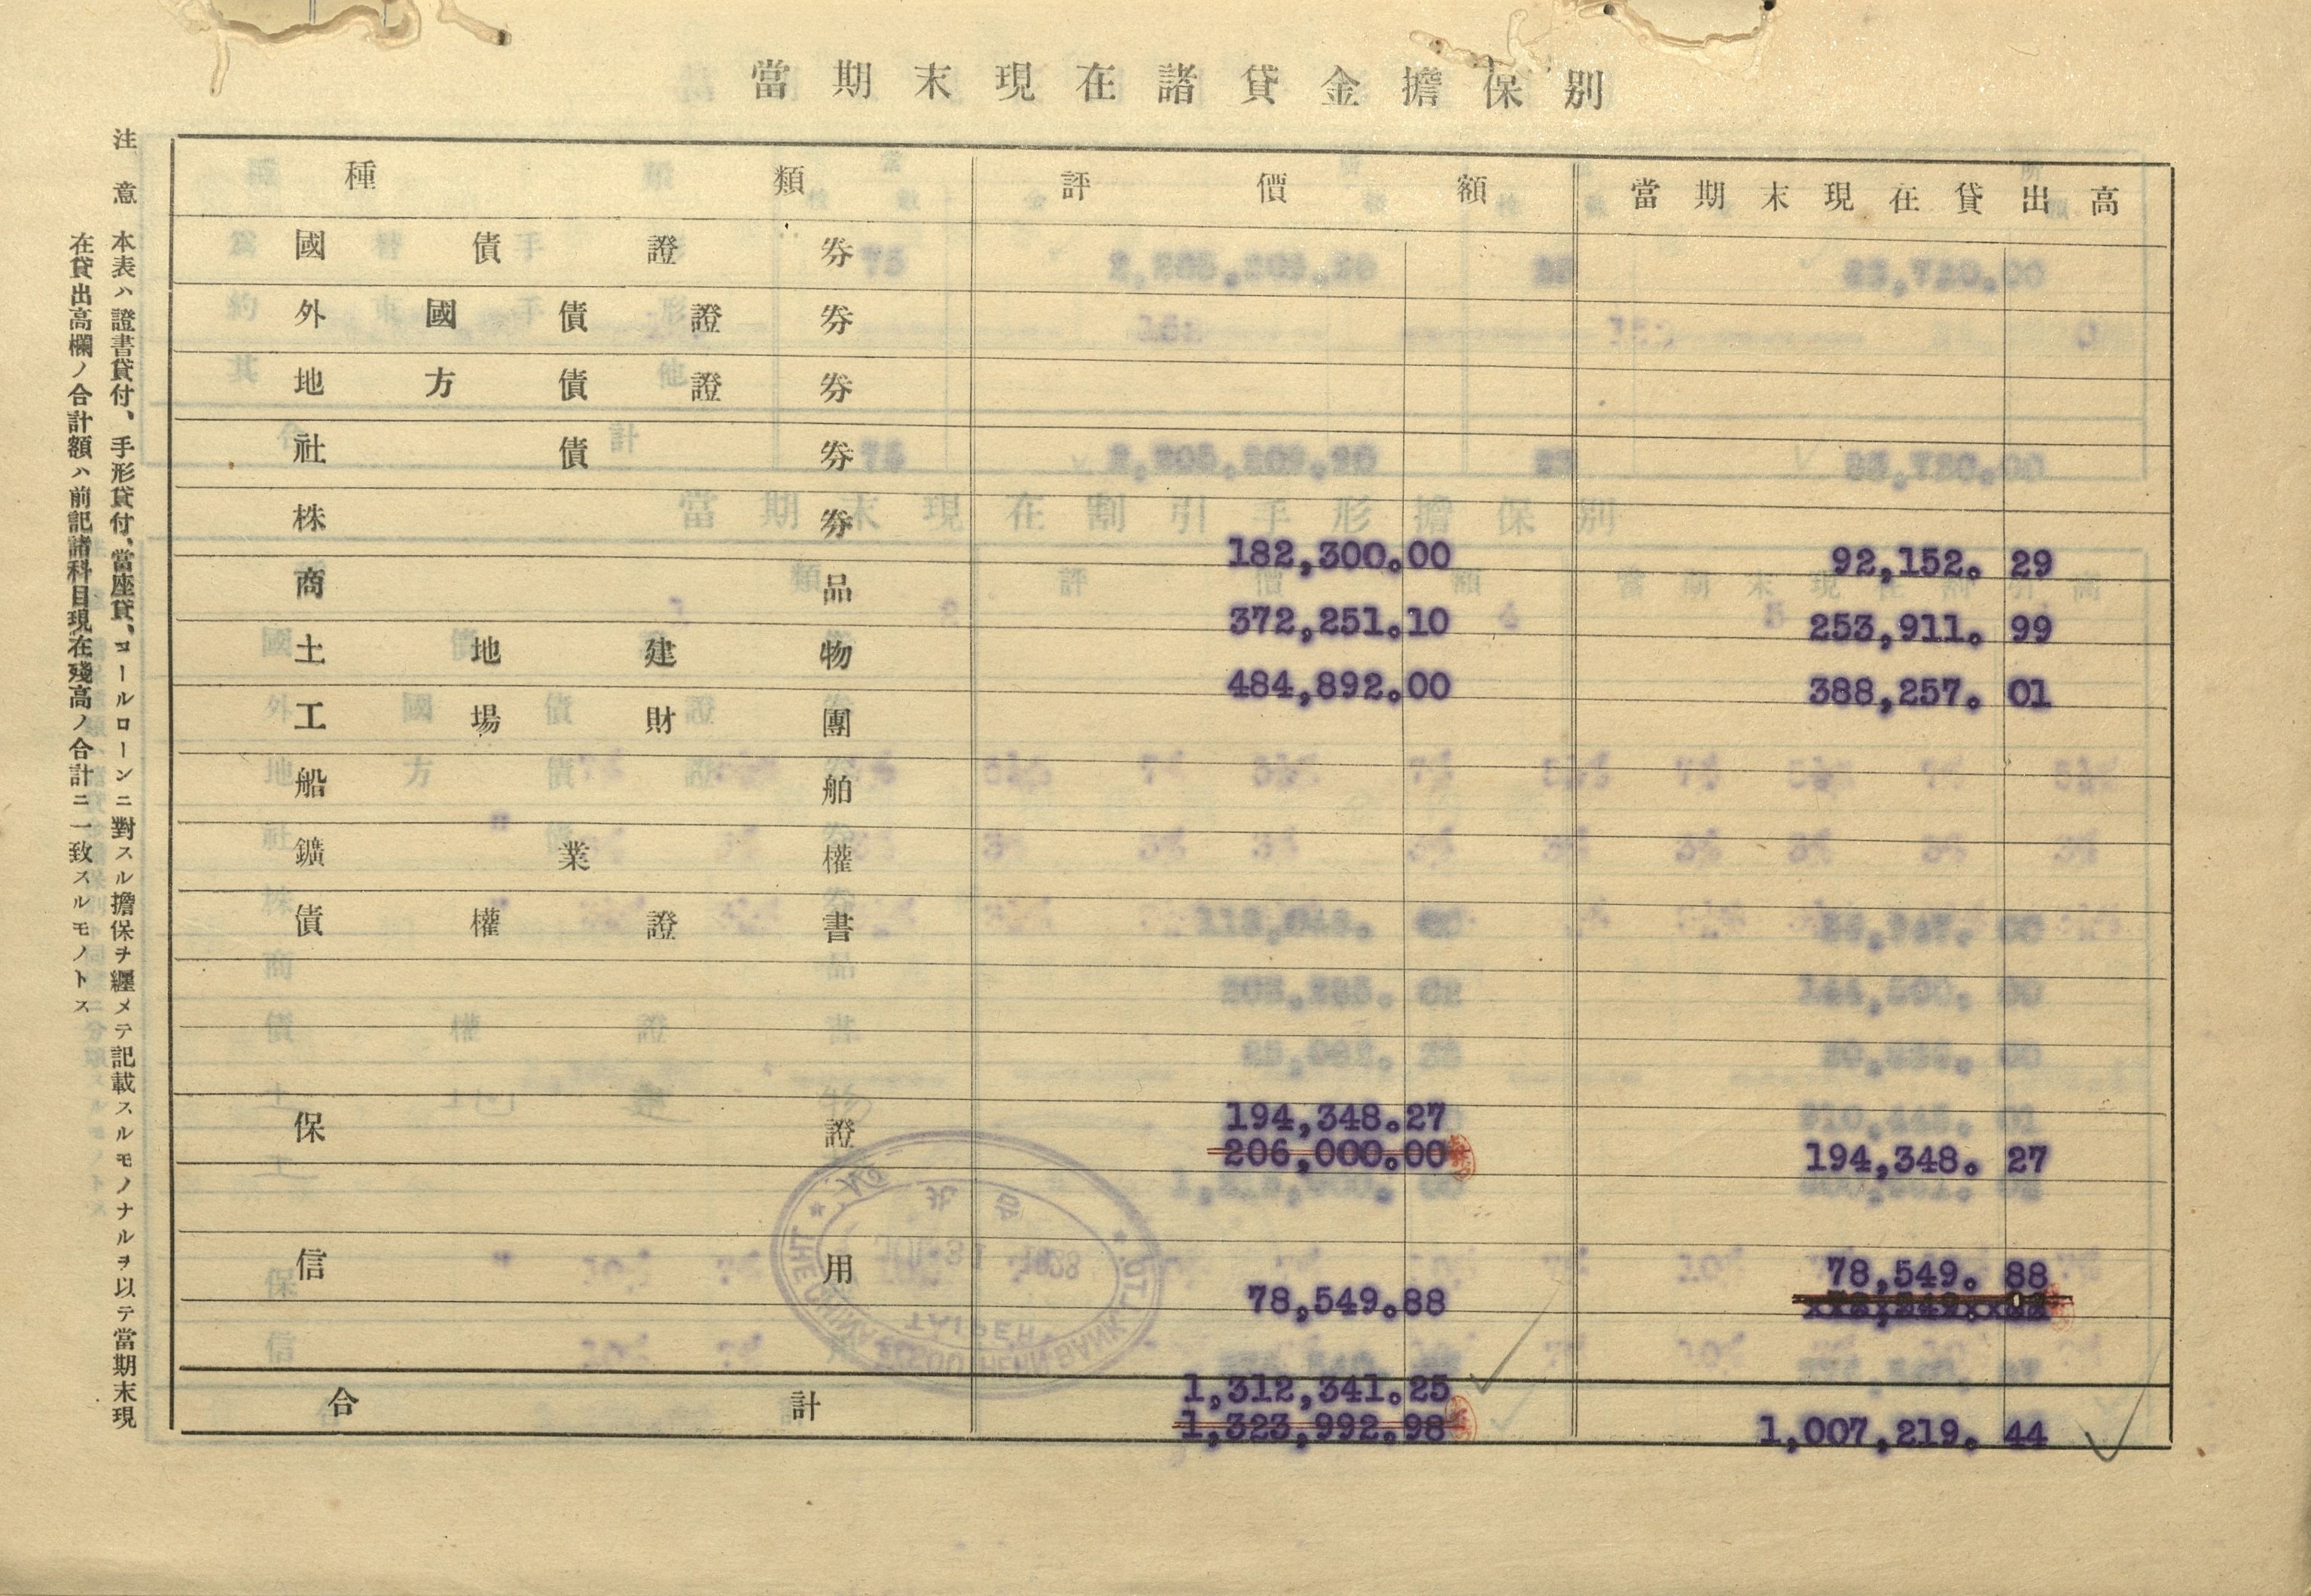 當期末現在諸貸金擔保別
種類 評價額 當期末現在貸出高
國債證券
外國債證券
地方債證券
社債券
株券 182,300.00 92,152.29
商品 372,251.10 253,911.99
土地建物 484,892.00 388,257.01
工場財團
船舶
鑛業權
債權證書
保證 194,348.27
206,000.00 194,348.27
信用 78,549.88
78,549.88
合計 1,312,341.25
1,323,992.98 1,007,219.44
注意 本表ハ證書貸付、手形貸付、當座貸、コールローンニ對スル擔保ヲ纒メテ記載スルモノナルヲ以テ當期末現
在貸出高欄ノ合計額ハ前記諸科目現在殘高ノ合計ニ一致スルモノトス